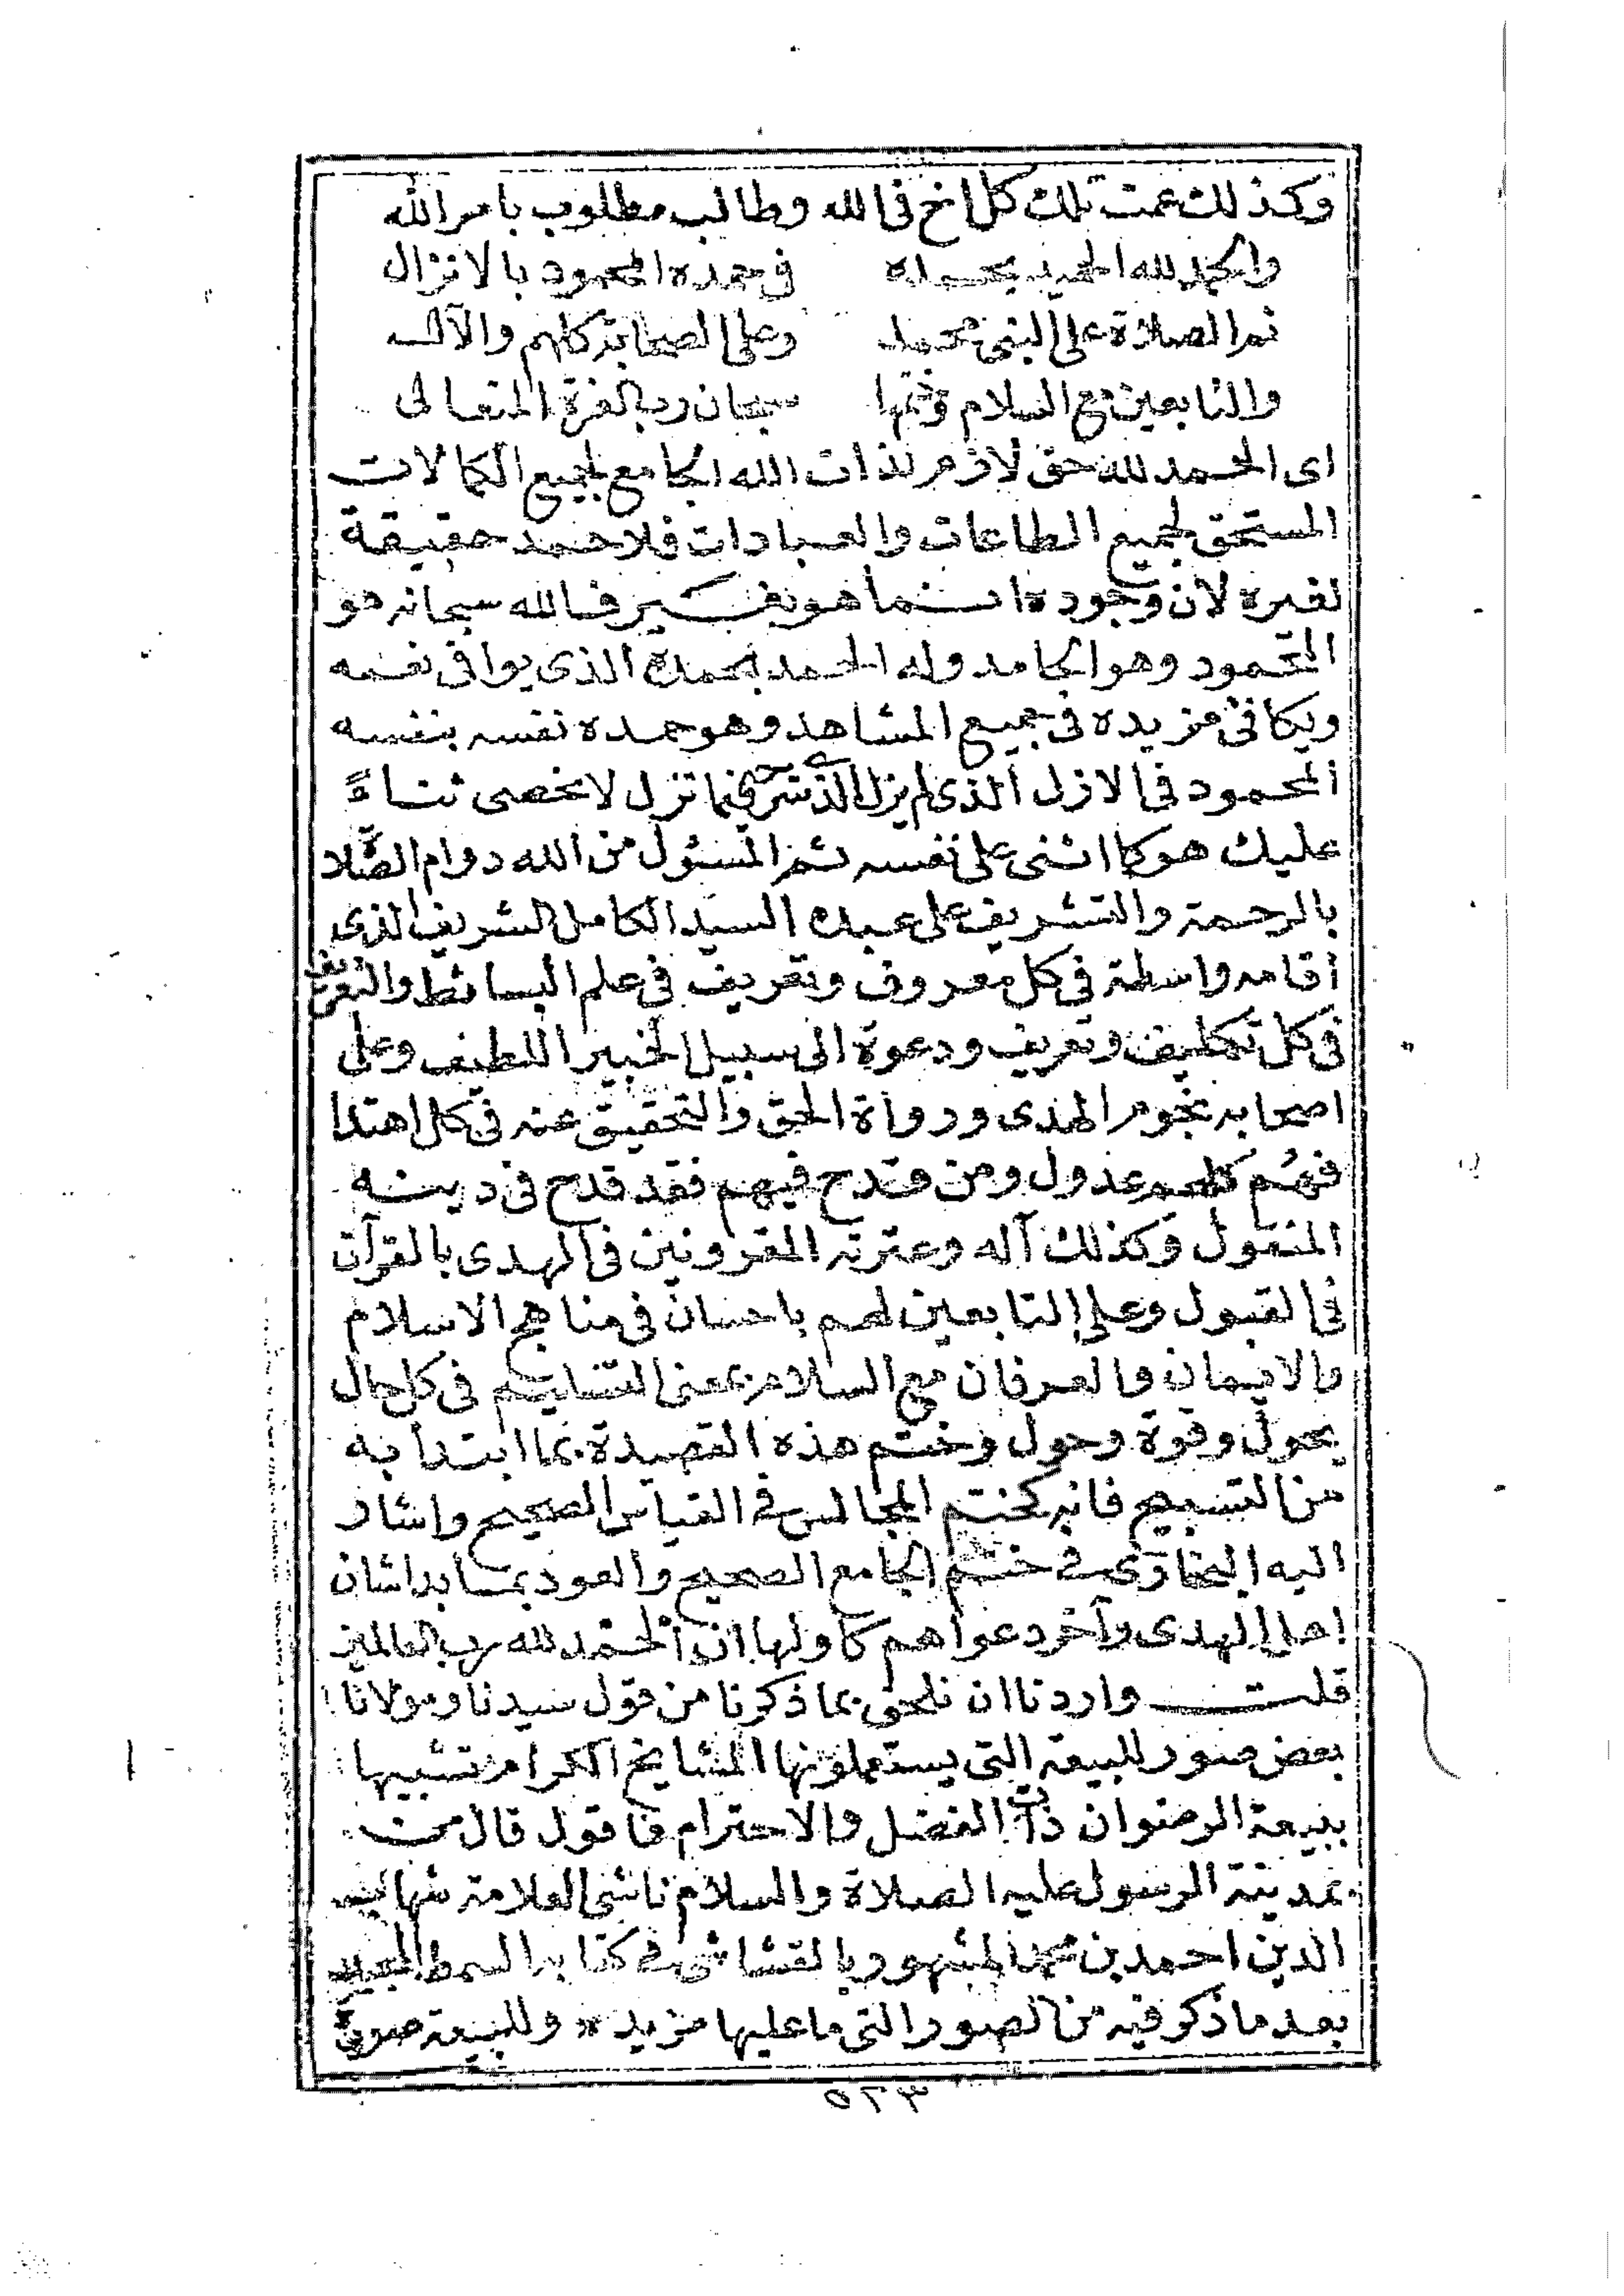 وكذلك عمت تلك كل اخ في الله وطالب مطلوب بامر الله
والحمد لله الحميد بحمده في حمده المحمود بالانزال
ثم الصلاة على النبي محمد وعلى الصحابة كلهم والآل
والتابعين مع السلام وختمها سبحان رب العزة المتعالى
اى الحمد لله حق لازم لذات الله الجامع لجميع الكمالات
المستحق لجميع الطاعات والعبادات فلا حمد حقيقة
لغيره لان وجوده انما هو بغير فالله سبحانه هو
المحمود وهو الحامد وله الحمد بحمده الذى يوافى نعمه
ويكافئ مزيده فى جميع المشاهد وهو حمده نفسه بنفسه
المحمود فى الازل الذى لم يزل فيما تزل لا نحصى ثناءً
عليك هو كما اثنى على نفسه ثم المسئول من الله دوام الصلاة
بالرحمة والتشريف على عبده السيد الكامل الشريف الذى
أقامه واسطة فى كل معروف وتعريف فى علم البسائط والتعريف
فى كل تكليف وتعريف ودعوة الى سبيل الخبير اللطيف وعلى
اصحابه نجوم الهدى ورواة الحق والتحقيق عنه فى كل اهتدا
فهُم كلهم عدول ومن قدح فيهم فقد قدح فى دينه
المنقول وكذلك آله وعترته المقرونين فى الهدى بالقرآن
فى القبول وعلى التابعين لهم باحسان فى مناهج الاسلام
والايمان والعرفان مع السلام بمعنى التسليم فى كل حال
بحول وقوة وحول وختم هذه القصيدة بما ابتدأ به
من التسبيح فانه كختم المجالس فى القياس الصحيح واشار
اليه البخارى فى ختم الجامع الصحيح والعود بما بدا شان
اهل الهدى وآخر دعواهم كاولها ان الحمد لله رب العالمين
قلت واردنا ان نلحق بما ذكرنا من قول سيدنا ومولانا
بعض صور للبيعة التى يستعملونها المشايخ الكرام تشبيها
ببيعة الرضوان ذات الفضل والاحترام فاقول قال من
بمدينة الرسول عليه الصلاة والسلام ناشى العلامة شهاب
الدين احمد بن محمد المشهور بالقشاشى فى كتابه السمط المجيد
بعد ما ذكر فيه من الصور التى ما عليها مزيد * وللبيعة صورة
٥٢٣